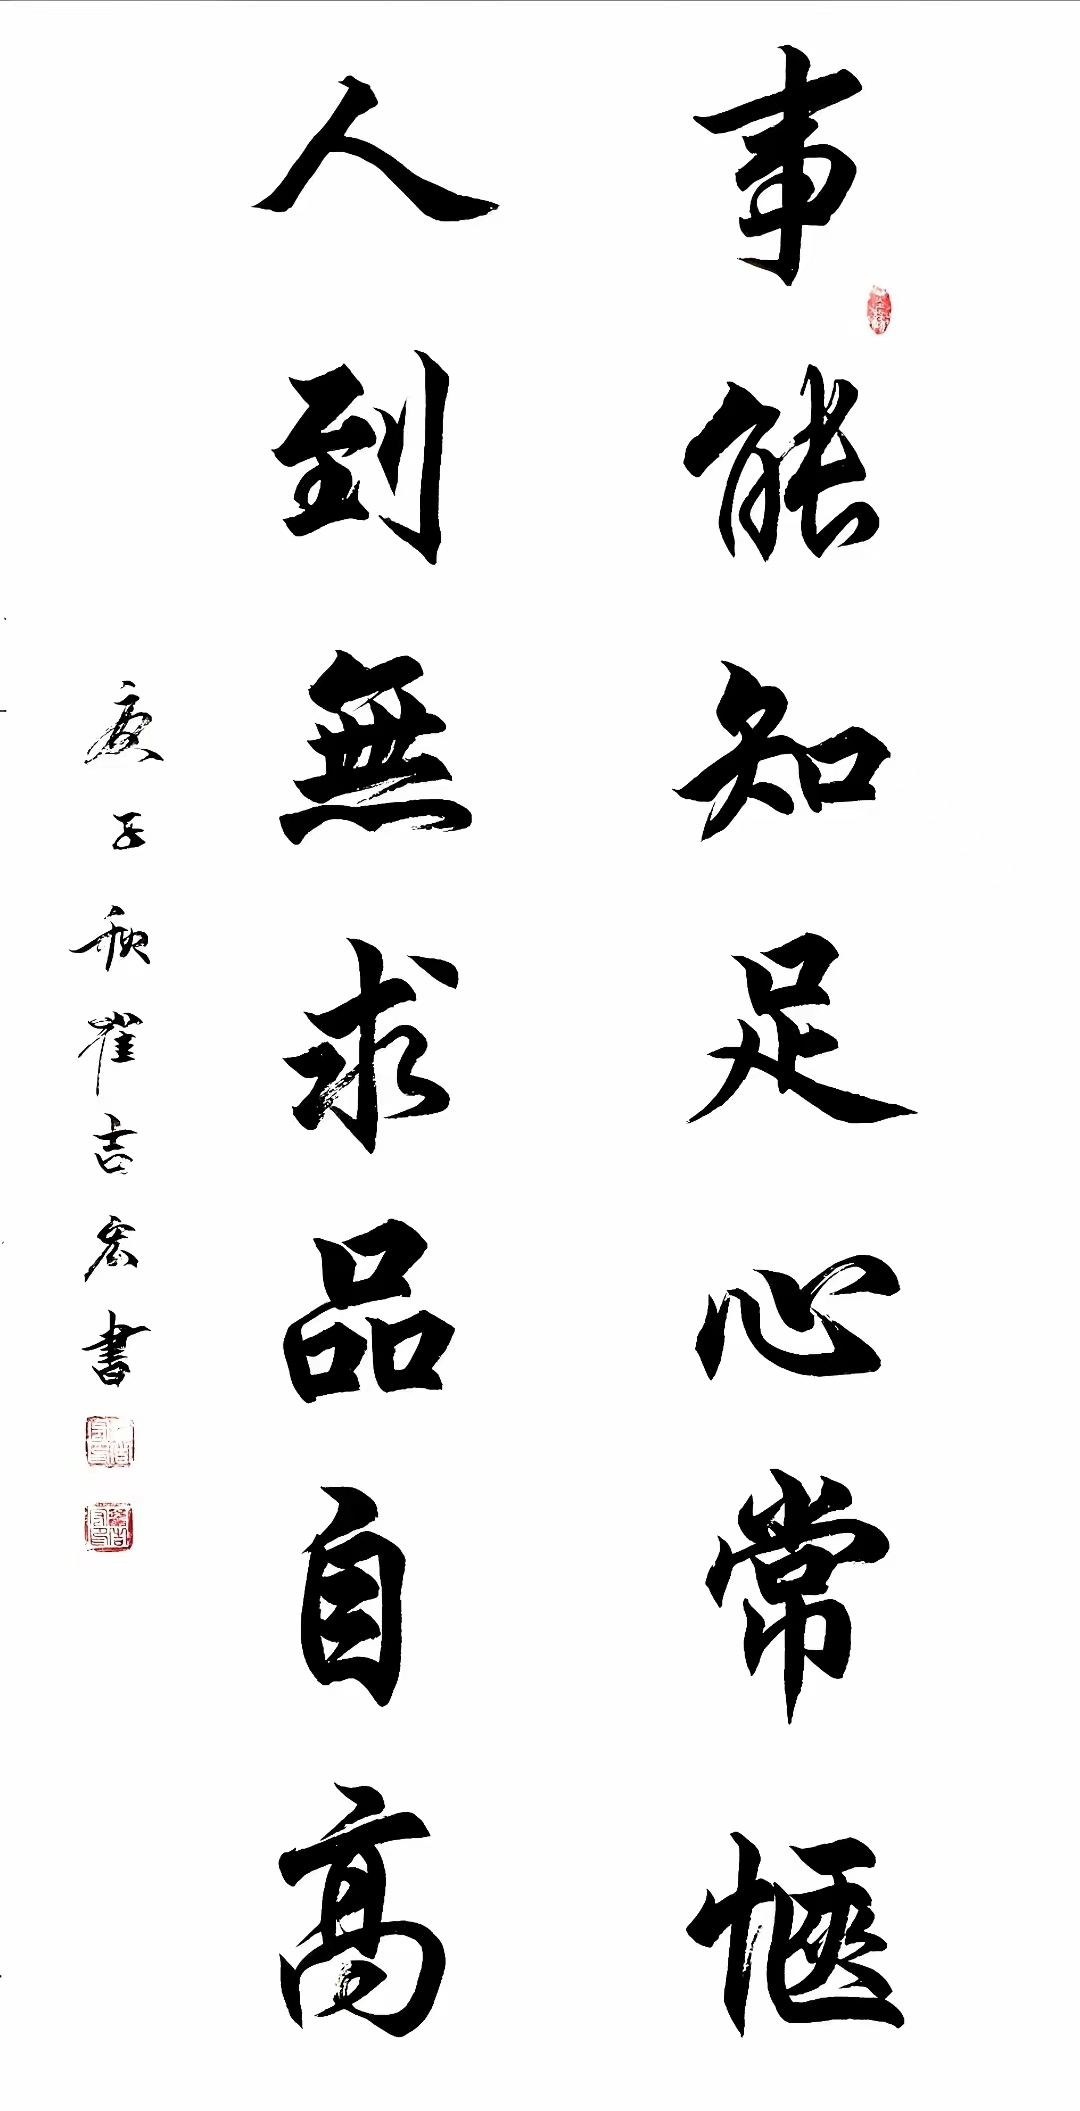 事能知足心常愜
人到無求品自高
庚子秋崔吉宏書